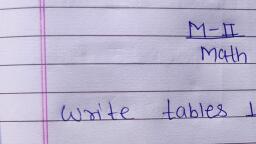 M-II
Math
Write tables 1